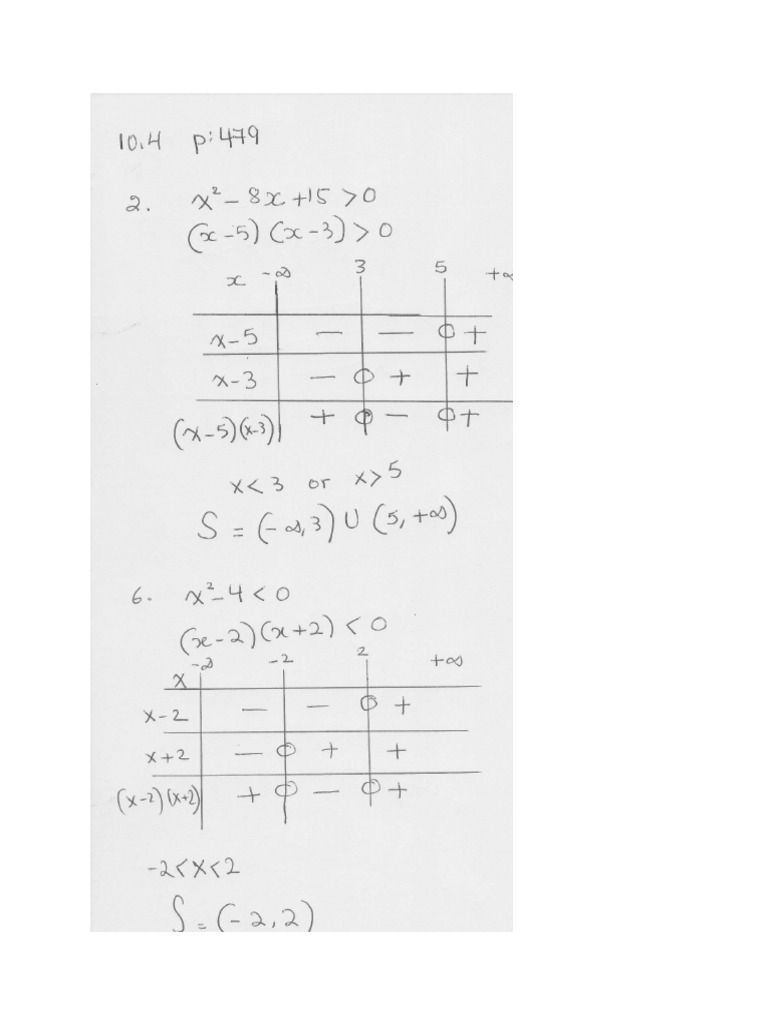 10.4 p:479
2. x² - 8x + 15 > 0
(x-5) (x-3) > 0
x -∞ 3 5 +∞
x-5 - - 0 +
x-3 - 0 + +
(x-5)(x-3) + 0 - 0 +
x < 3 or x > 5
S = (-∞,3) U (5, +∞)
6. x² - 4 < 0
(x-2)(x+2) < 0
x -∞ -2 2 +∞
x-2 - - 0 +
x+2 - 0 + +
(x-2)(x+2) + 0 - 0 +
-2 < x < 2
S = (-2, 2)